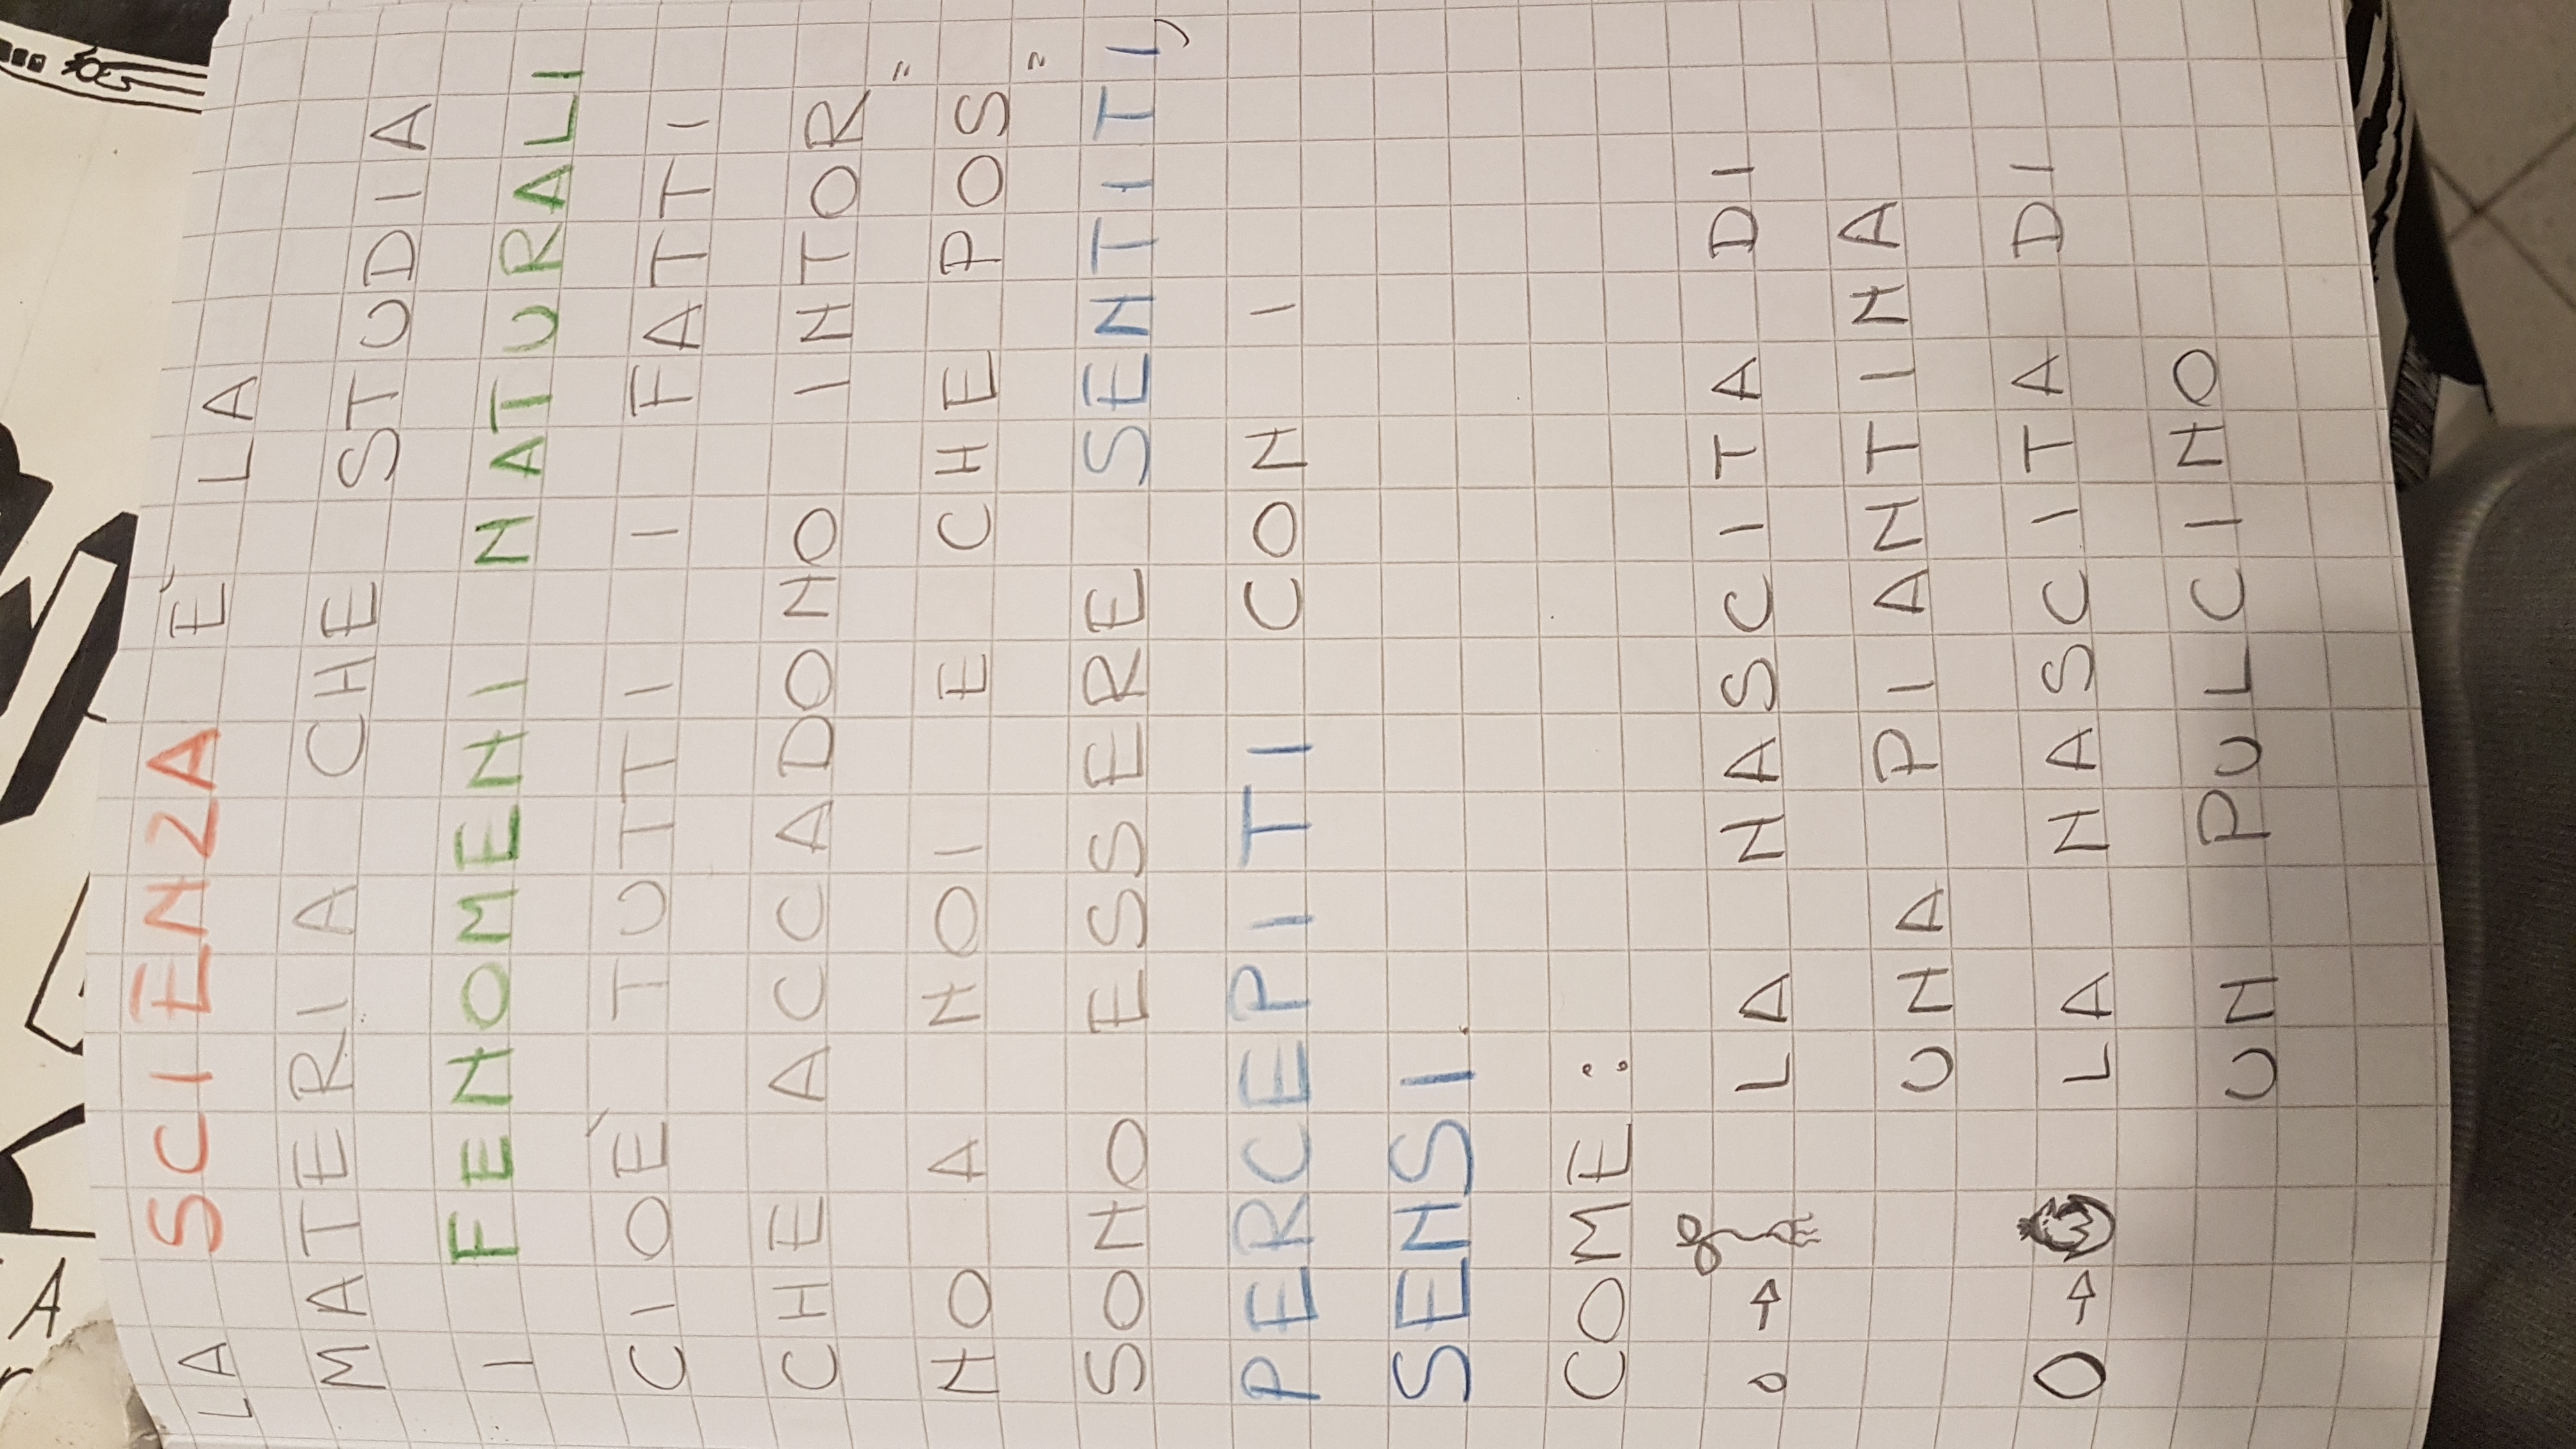 LA SCIENZA È LA
MATERIA CHE STUDIA
I FENOMENI NATURALI
CIOÈ TUTTI I FATTI
CHE ACCADONO INTOR=
NO A NOI E CHE POS=
SONO ESSERE SENTITI,
PERCEPITI CON I
SENSI.
COME:
LA NASCITA DI
UNA PIANTINA
LA NASCITA DI
UN PULCINO